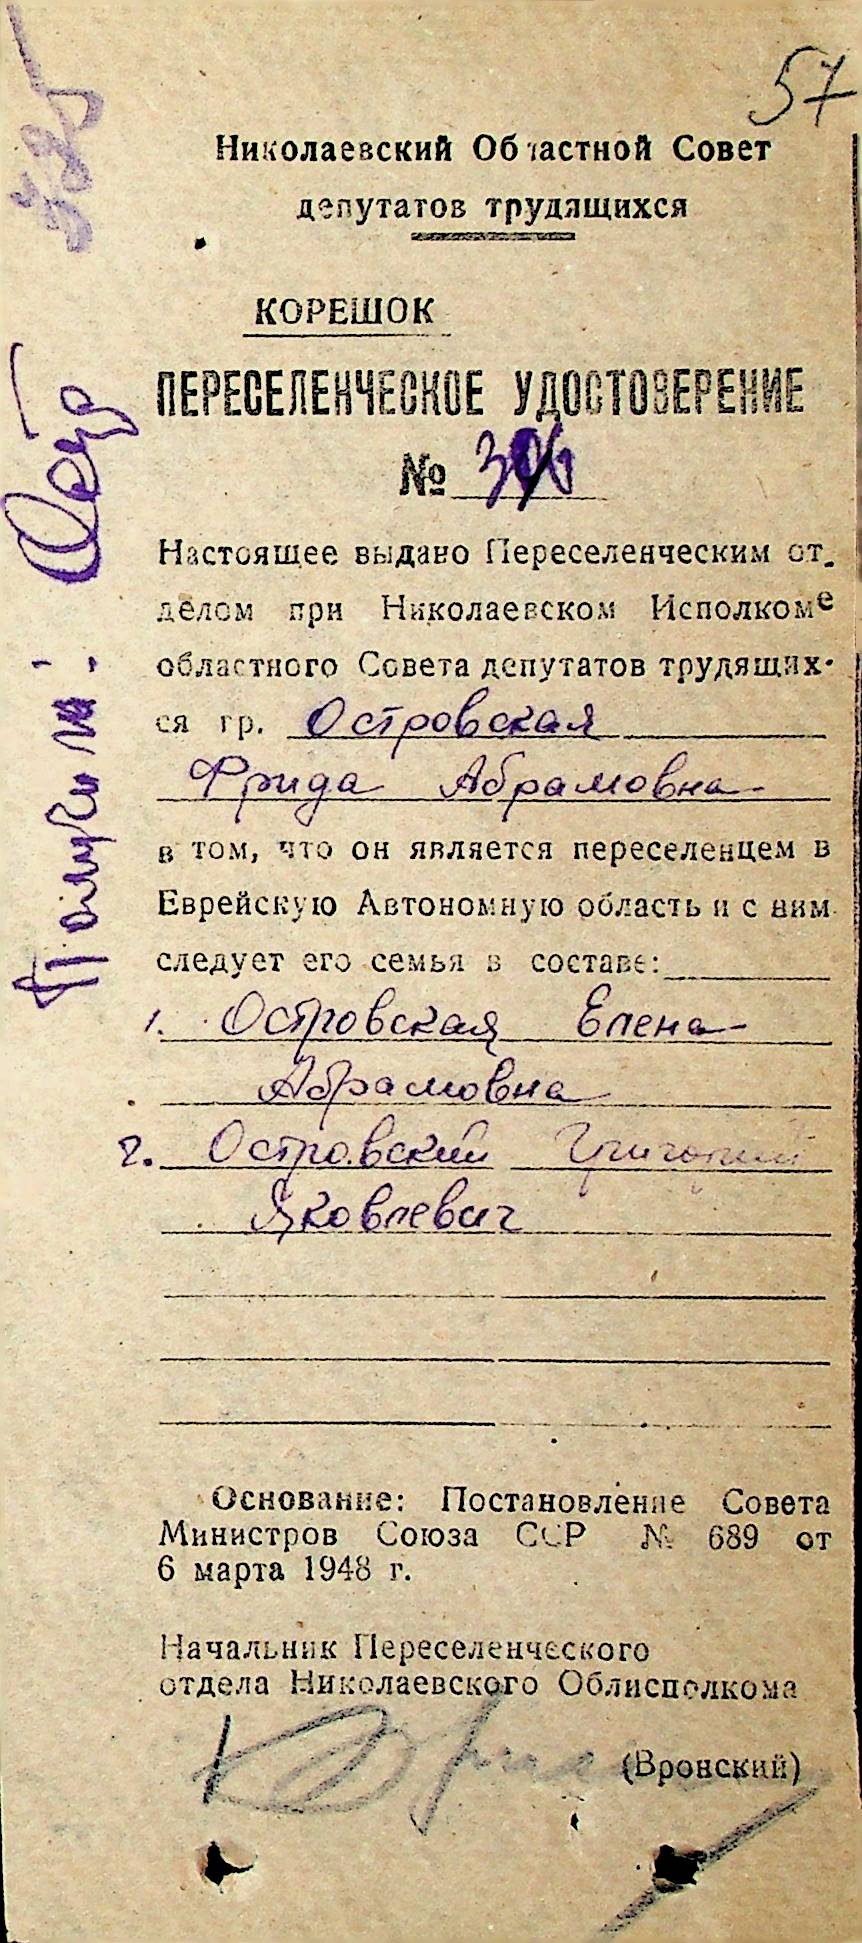 57
Николаевский Областной Совет
депутатов трудящихся
КОРЕШОК
ПЕРЕСЕЛЕНЧЕСКОЕ УДОСТОВЕРЕНИЕ
№
Настоящее выдано Переселенческим от-
делом при Николаевском Исполкоме
областного Совета депутатов трудящих-
ся гр. Островская
Фрида Абрамовна
в том, что он является переселенцем в
Еврейскую Автономную область и с ним
следует его семья в составе:
1. Островская Елена
Абрамовна
2. Островский Григорий
Яковлевич
Основание: Постановление Совета
Министров Союза ССР № 689 от
6 марта 1948 г.
Начальник Переселенческого
отдела Николаевского Облисполкома
(Вронский)
Получил: